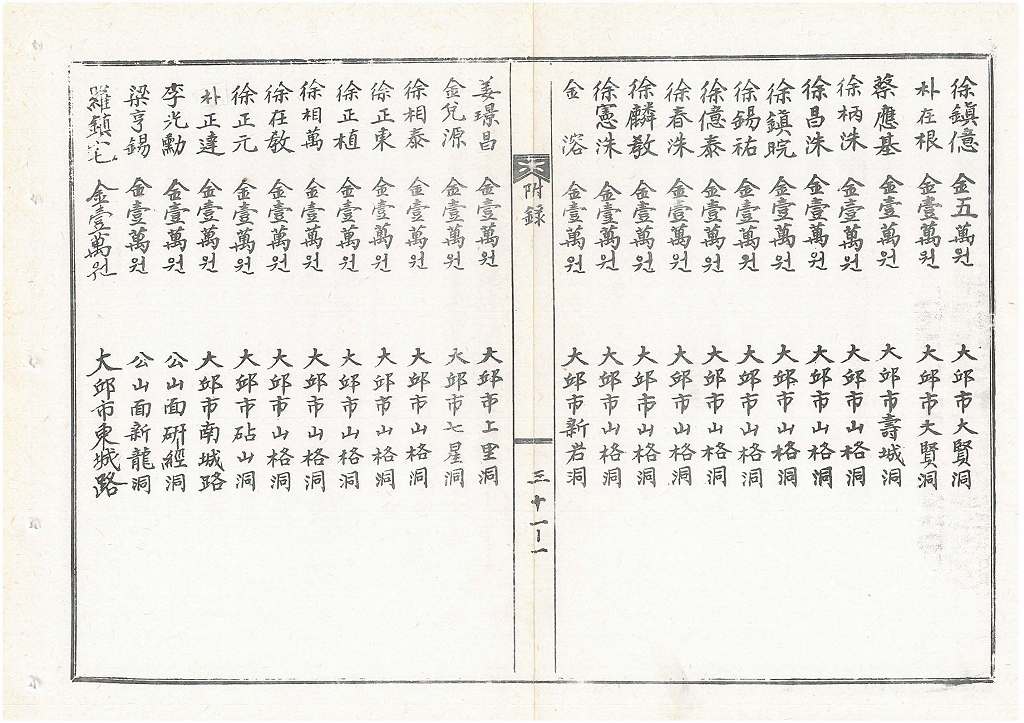 徐鎭億 金五萬원 大邱市大賢洞
朴在根 金壹萬원 大邱市大賢洞
蔡應基 金壹萬원 大邱市壽城洞
徐柄洙 金壹萬원 大邱市山格洞
徐昌洙 金壹萬원 大邱市山格洞
徐鎭晥 金壹萬원 大邱市山格洞
徐錫祐 金壹萬원 大邱市山格洞
徐億泰 金壹萬원 大邱市山格洞
徐春洙 金壹萬원 大邱市山格洞
徐麟敎 金壹萬원 大邱市山格洞
徐憲洙 金壹萬원 大邱市山格洞
金溶 金壹萬원 大邱市新岩洞
附錄
三十一-一
姜璟昌 金壹萬원 大邱市上里洞
金兌源 金壹萬원 大邱市七星洞
徐相泰 金壹萬원 大邱市山格洞
徐正東 金壹萬원 大邱市山格洞
徐正植 金壹萬원 大邱市山格洞
徐相萬 金壹萬원 大邱市山格洞
徐在敎 金壹萬원 大邱市山格洞
徐正元 金壹萬원 大邱市砧山洞
朴正達 金壹萬원 大邱市南城路
李光勳 金壹萬원 公山面硏經洞
梁亨錫 金壹萬원 公山面新龍洞
羅鎭 金壹萬원 大邱市東城路